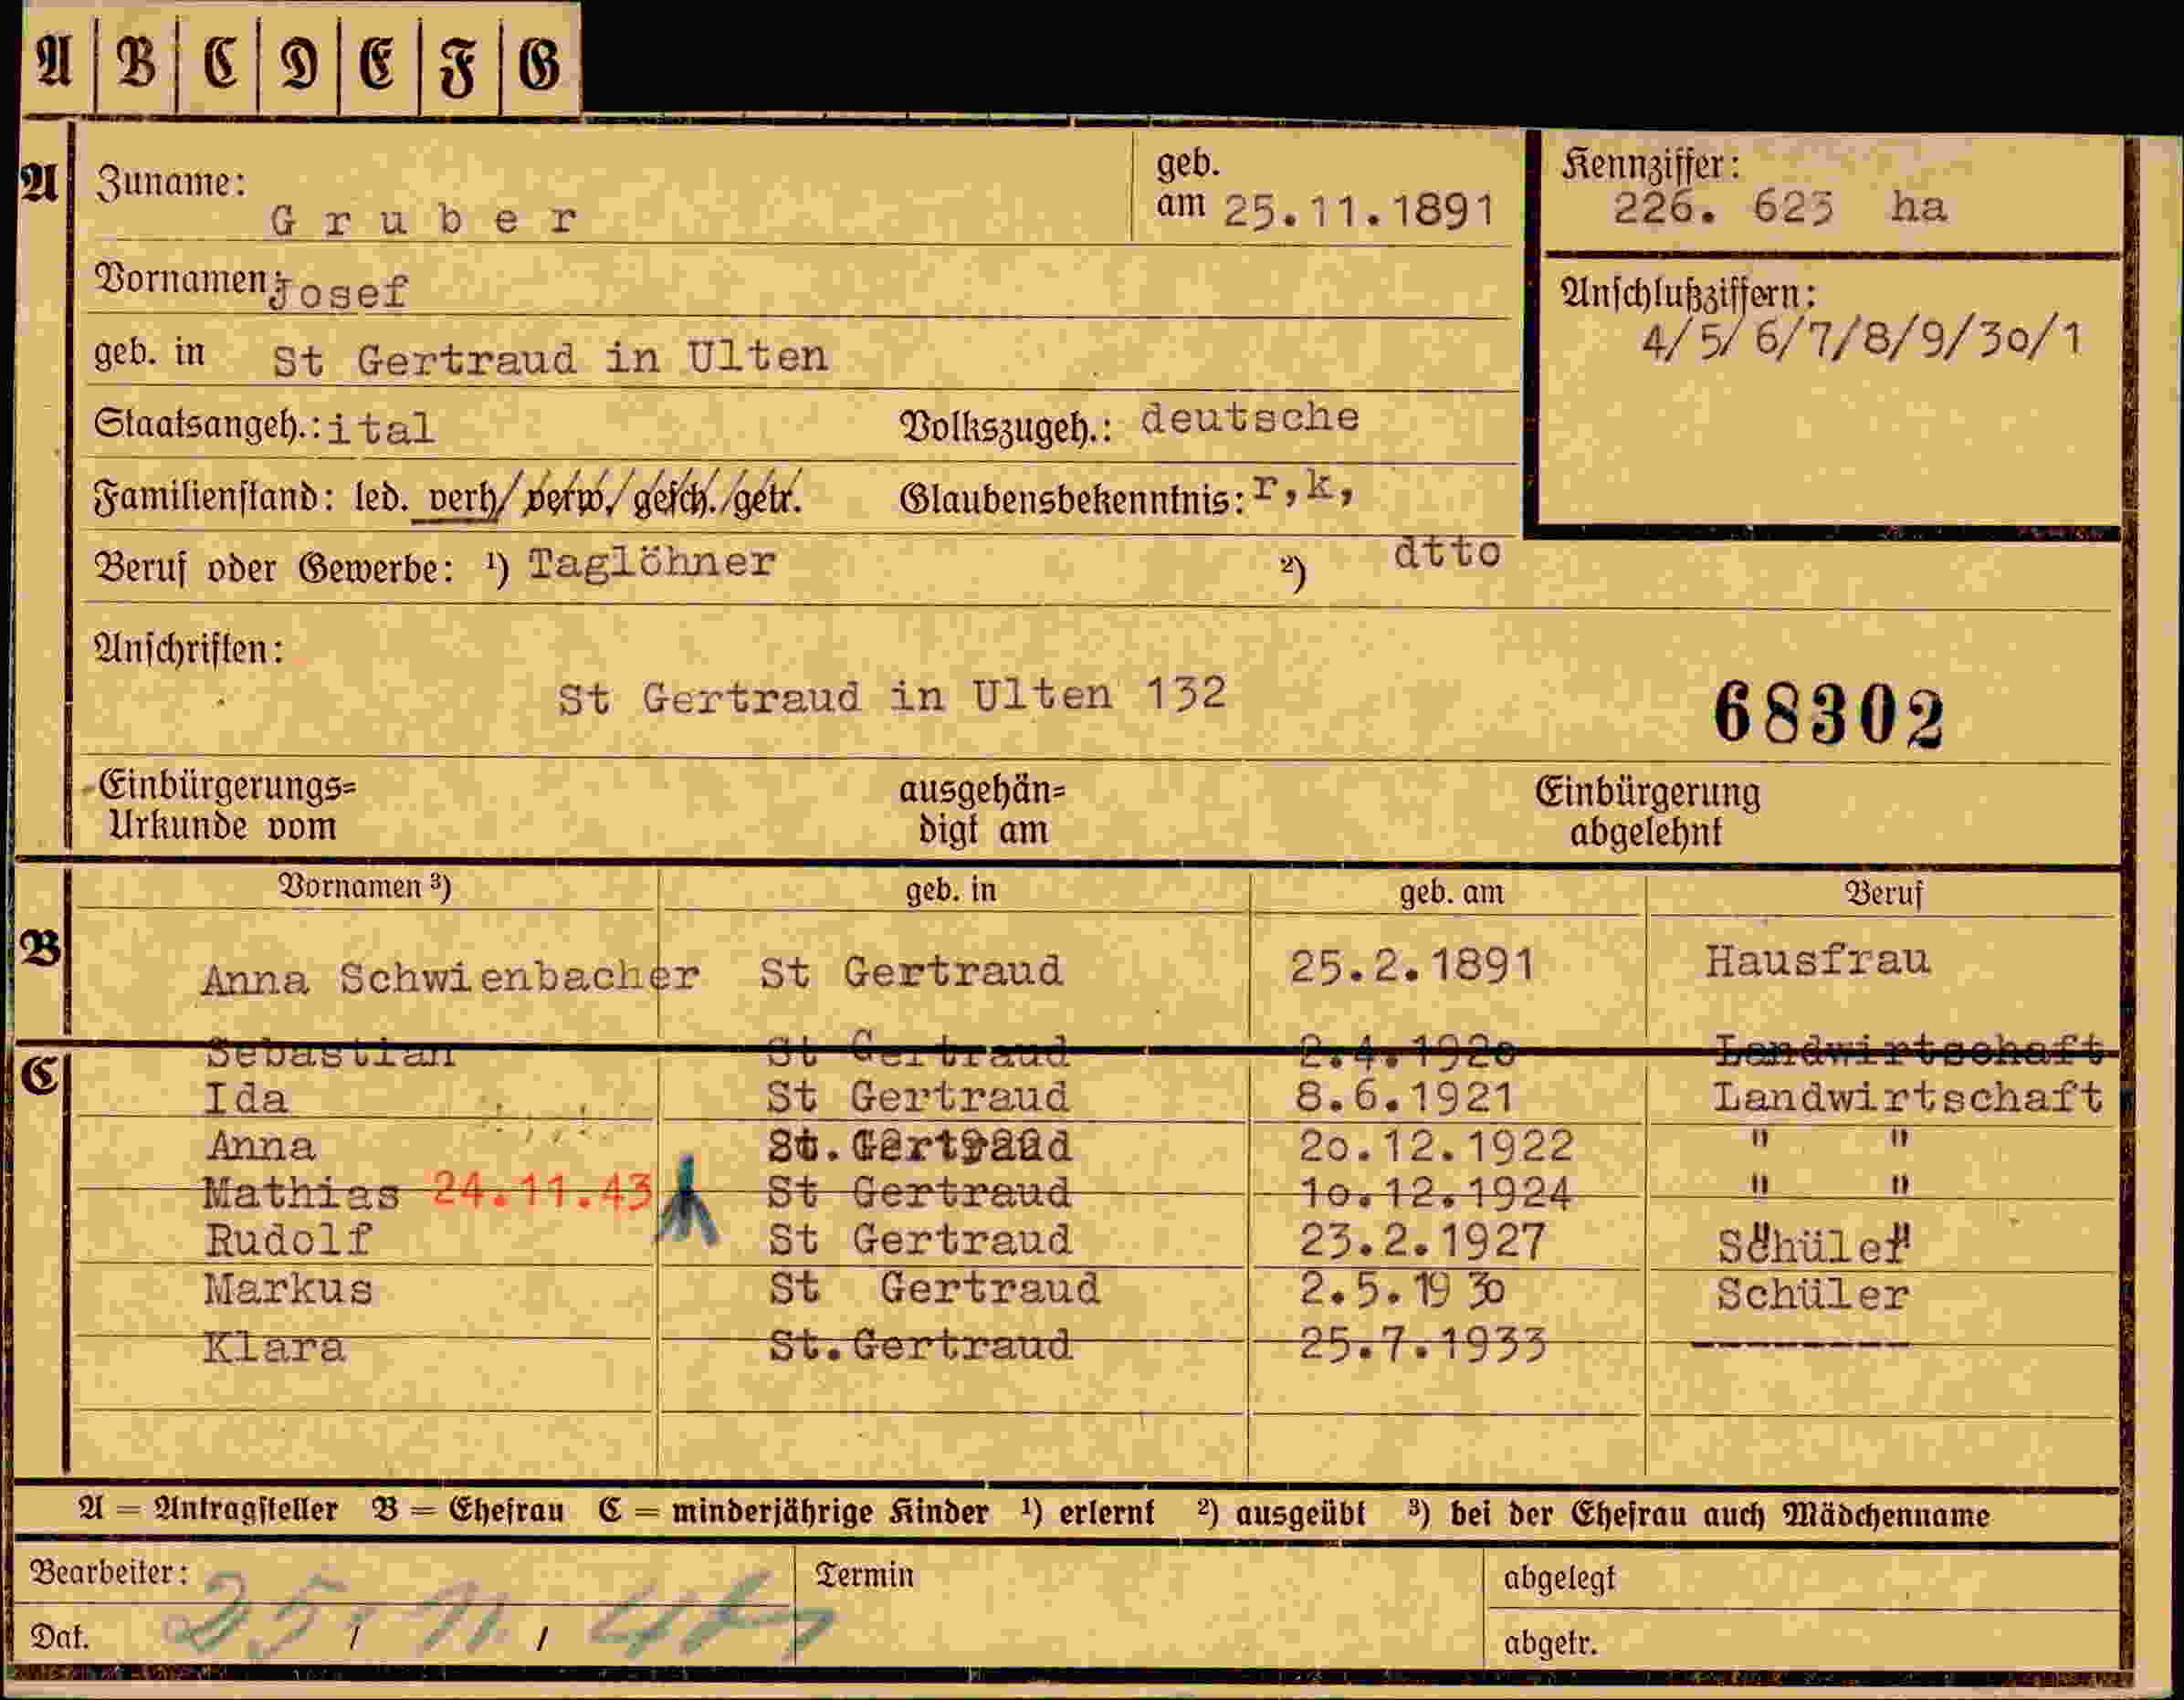 A B C D E F G
A Zuname: Gruber geb. am 25.11.1891
Kennziffer: 226. 623 ha
Vornamen: Josef
Anschlußziffern: 4/5/6/7/8/9/30/1
geb. in St Gertraud in Ulten
Staatsangeh.: ital Volkszugeh.: deutsche
Familienstand: led. verh/ verw./ gesch./getr. Glaubensbekenntnis: r,k,
Beruf oder Gewerbe: ¹) Taglöhner ²) dtto
Anschriften:
St Gertraud in Ulten 132
68302
Einbürgerungs= ausgehän= Einbürgerung
Urkunde vom digt am abgelehnt
Vornamen ³) geb. in geb. am Beruf
B Anna Schwienbacher St Gertraud 25.2.1891 Hausfrau
Sebastian St Gertraud 2.4.1920 Landwirtschaft
C Ida St Gertraud 8.6.1921 Landwirtschaft
Anna St. Gertraud 20.12.1922 " "
Mathias 24.11.43 St Gertraud 10.12.1924 " "
Rudolf St Gertraud 23.2.1927 Schüler
Markus St Gertraud 2.5.1930 Schüler
Klara St. Gertraud 25.7.1933 --------
A = Antragsteller B = Ehefrau C = minderjährige Kinder ¹) erlernt ²) ausgeübt ³) bei der Ehefrau auch Mädchenname
Bearbeiter: Termin abgelegt
Dat. abgetr.